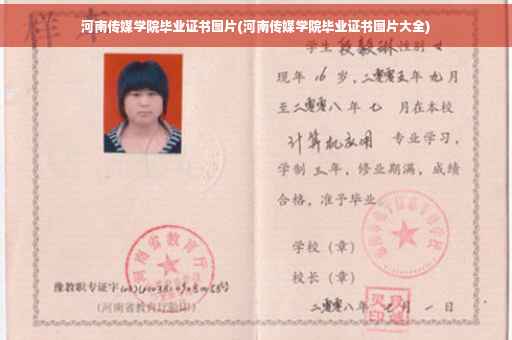 河南传媒学院毕业证书图片(河南传媒学院毕业证书图片大全)
样本
学生 段毅琳 性别 女
现年 16 岁，二零零五年 九月
至二零零八年 七 月在本校
计算机应用 专业学习，
学制 三 年，修业期满，成绩
合格，准予毕业
学校（章）
校长（章）
河南省教育厅
豫教职专证字
(河南省教育厅验印)
二零零八年 七 月 一 日